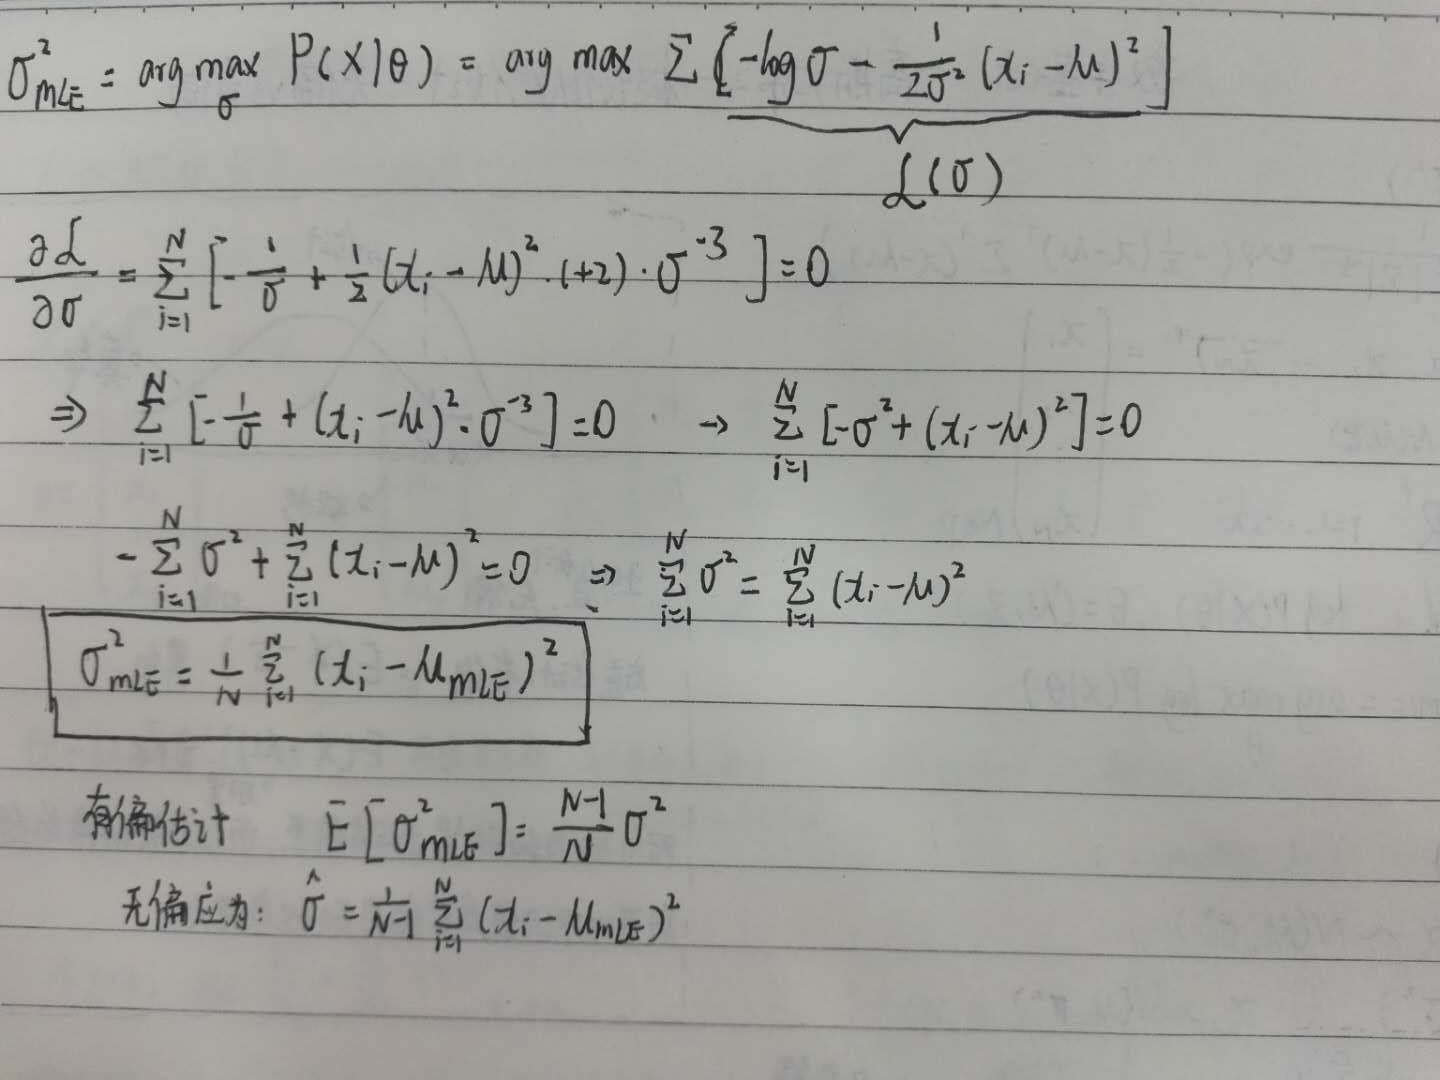 σ²_MLE = arg max_σ P(X|θ) = arg max Σ [-log σ - 1/2σ² (x_i - μ)²]
L(σ)
∂L/∂σ = Σ_{i=1}^{N} [-1/σ + 1/2 (x_i - μ)² · (+2) · σ^{-3}] = 0
⇒ Σ_{i=1}^{N} [-1/σ + (x_i - μ)² · σ^{-3}] = 0 → Σ_{i=1}^{N} [-σ² + (x_i - μ)²] = 0
- Σ_{i=1}^{N} σ² + Σ_{i=1}^{N} (x_i - μ)² = 0 ⇒ Σ_{i=1}^{N} σ² = Σ_{i=1}^{N} (x_i - μ)²
σ²_MLE = 1/N Σ_{i=1}^{N} (x_i - μ_MLE)²
有偏估计 E[σ²_MLE] = N-1/N σ²
无偏应为: σ̂ = 1/N-1 Σ_{i=1}^{N} (x_i - μ_MLE)²